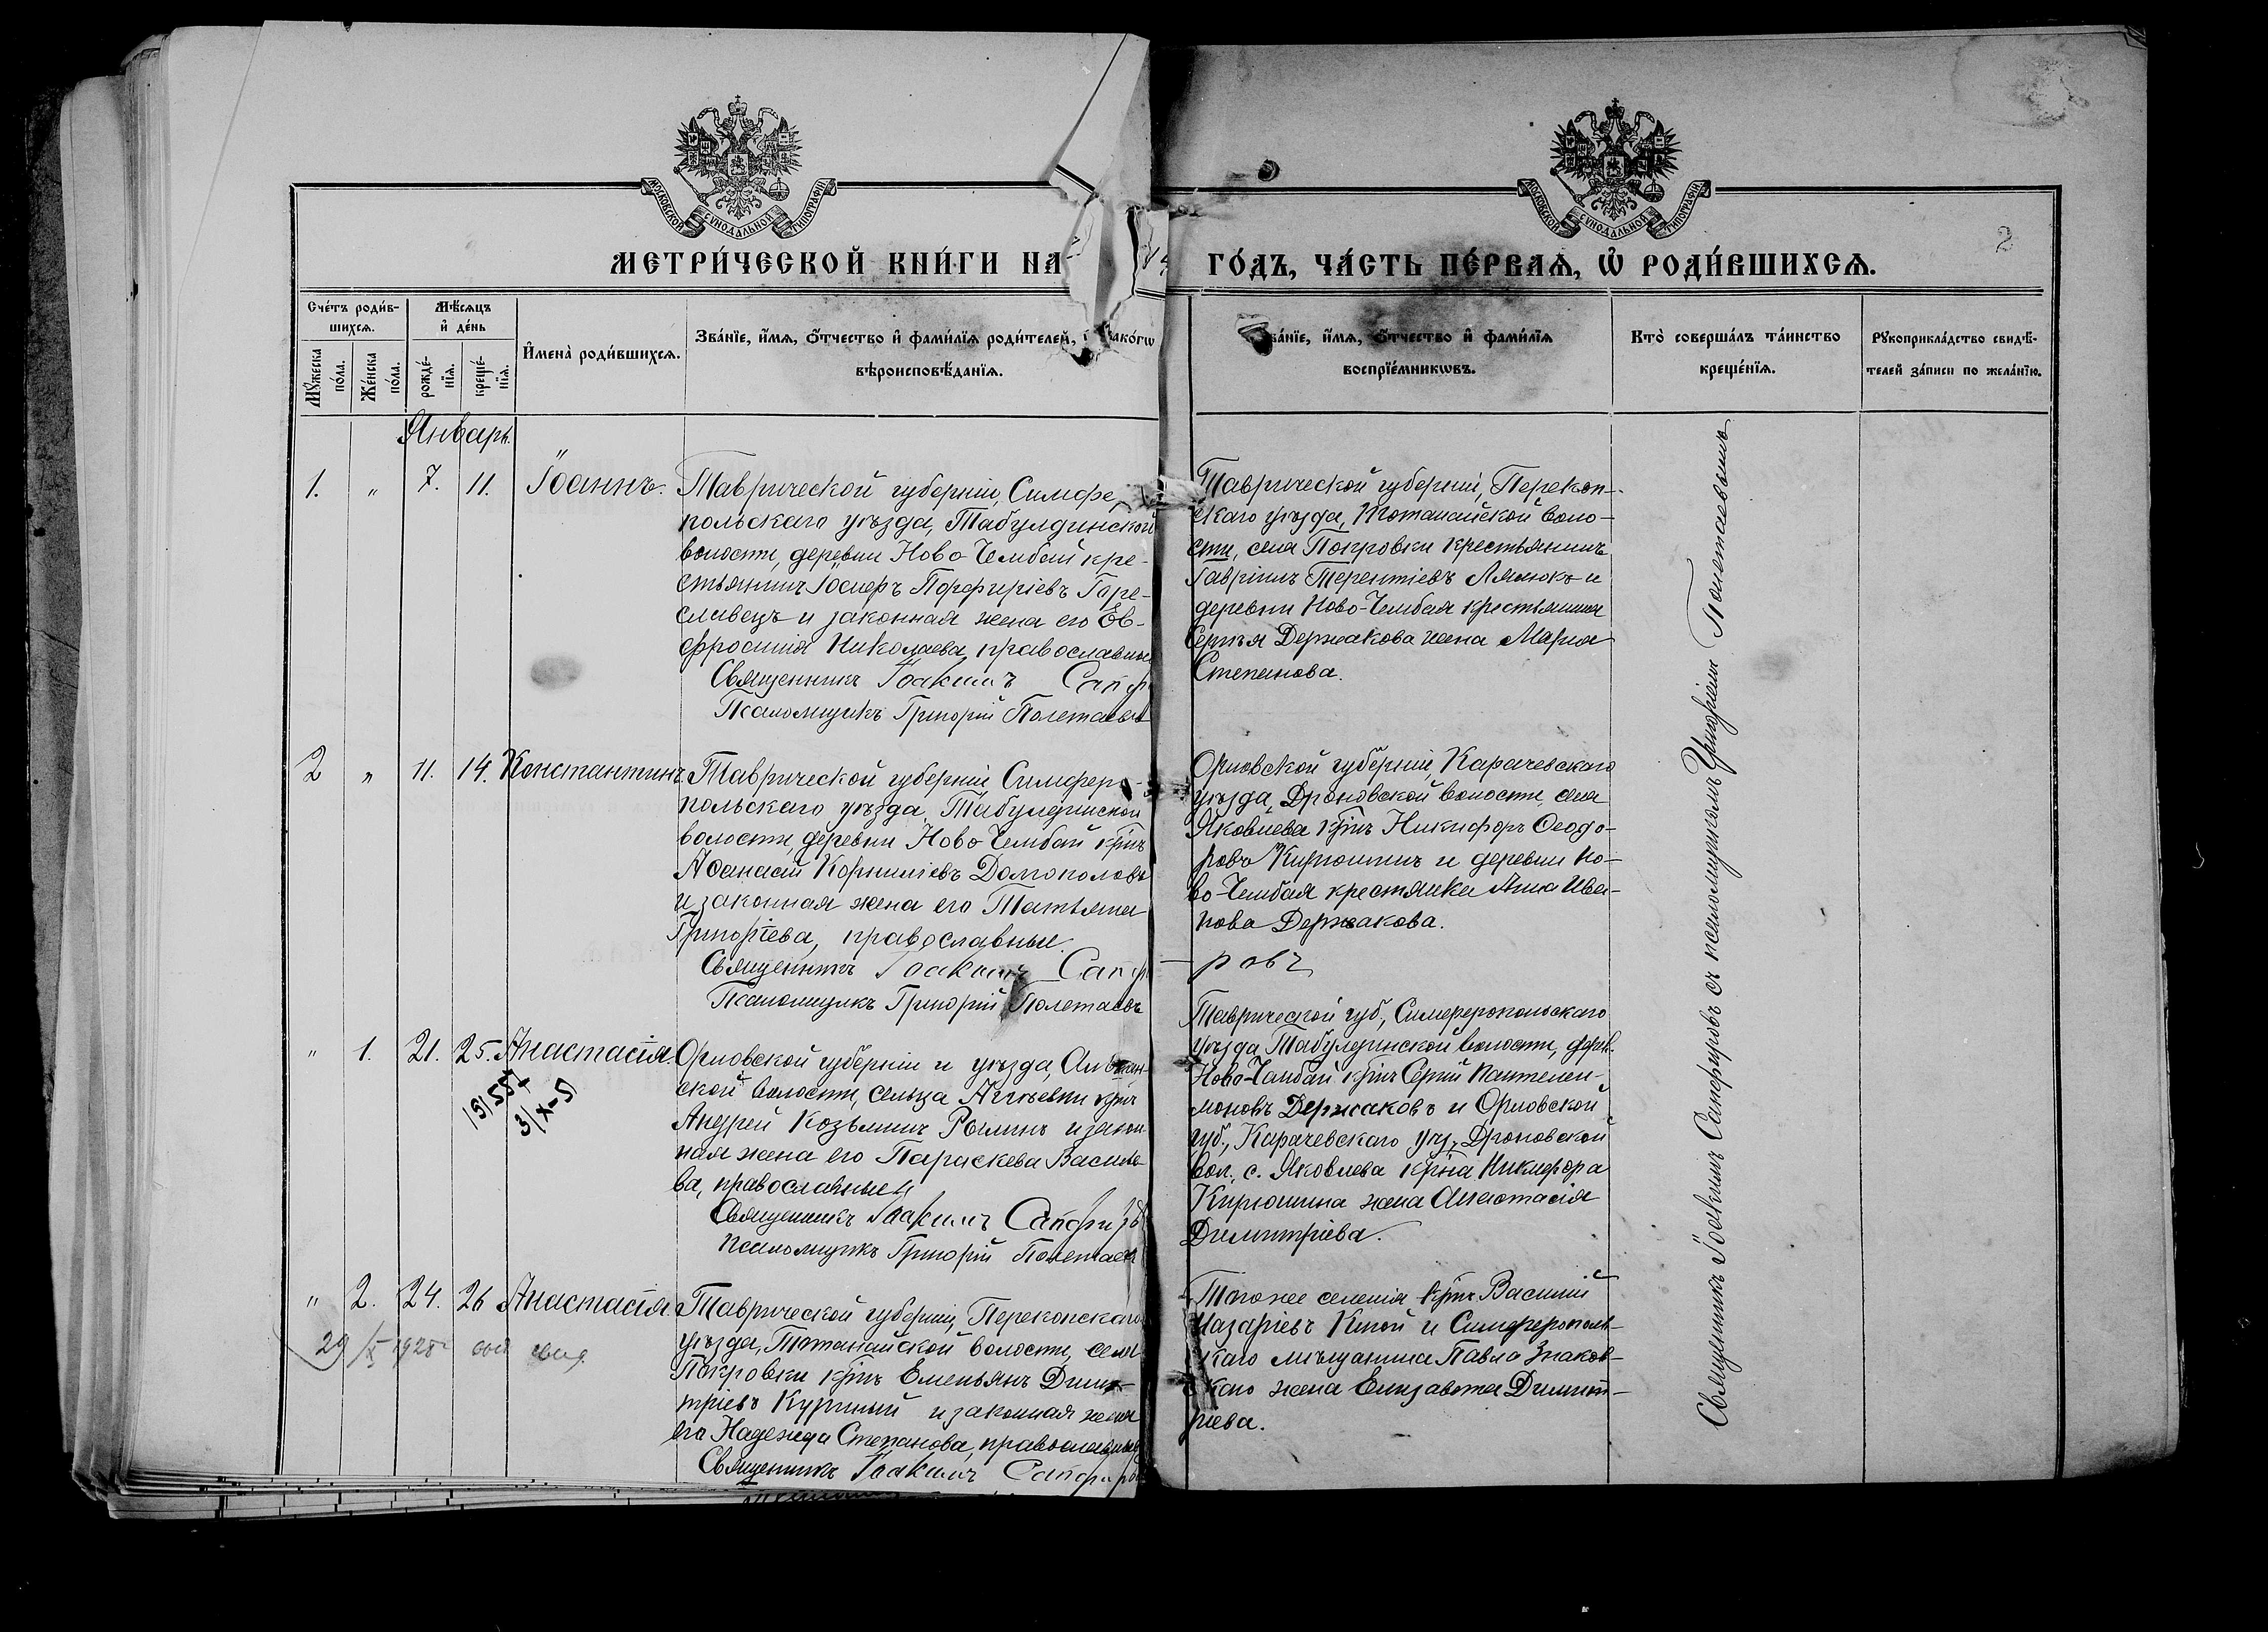 МОСКОВСКОЙ СѴНОДАЛЬНОЙ ТИПОГРАФІИ
МОСКОВСКОЙ СѴНОДАЛЬНОЙ ТИПОГРАФІИ
2
МЕТРИ́ЧЕСКОЙ КНИ́ГИ НА ГО́ДЪ, ЧА́СТЬ ПЕ́РВАѦ, Ѡ РОДИ́ВШИХСѦ.
Сче́тъ роди́в-
шихсѧ.
Мꙋжеска
по́ла.
Же́нска
по́ла.
Мѣ́сѧцъ
и҆ де́нь
рожде́-
нїѧ.
креще́-
нїѧ.
И҆мена̀ роди́вшихсѧ.
Зва́нїе, и҆́мѧ, ѻ҆́тчество и҆ фами́лїѧ роди́телей, како́гѡ
вѣроисповѣ́данїѧ.
ва́нїе, и҆́мѧ, ѻ҆́тчество и҆ фами́лїѧ
воспрїе́мникѡвъ.
Кто̀ соверша́лъ та́инство
креще́нїѧ.
Рꙋкоприкла́дство свидѣ́-
телей за́писи по жела́нїю.
Январь.
1. " 7. 11. Іоаннъ.
Таврической губерніи, Симфе
польскаго уѣзда, Табулдинской
волости, деревни Ново-Чембай кре-
стьянинъ Іосифъ Порфиріевъ Горе-
славецъ и законная жена его Ев-
фросинія Николаева, православные
Священникъ Іоакимъ Сапф
Псаломщикъ Григорій Полетаевъ
Таврической губерніи, Перекоп-
скаго уѣзда, Тотанайской воло-
сти, села Покровки крестьянинъ
Гавріилъ Терентіевъ Лялюкъ и
деревни Ново-Чембая крестьянина
Сергѣя Держакова жена Марія
Степанова.
2 " 11. 14. Константинъ
Таврической губерніи, Симферо-
польскаго уѣзда, Табулдинской
волости, деревни Ново-Чембай крнъ
Аѳанасій Корниліевъ Долгополовъ
и законная жена его Татьяна
Григоріева, православные.
Священникъ Іоакимъ Сапфи-
ровъ
Псаломщикъ Григорій Полетаевъ
Орловской губерніи, Карачевскаго
уѣзда, Дроновской волости, села
Яковлева крнъ Никифоръ Ѳеодо-
ровъ Кирюшинъ и деревни Но-
во-Чембая крестянка Анна Ива-
нова Держакова.
" 1. 21. 25. Анастасія.
Орловской губерніи и уѣзда,
ской волости, сельца крнъ
Андрей Козьминъ Рылинъ и закон
ная жена его Параскева Василье
ва, православные
Священникъ Іоакимъ Сапфировъ
Псаломщикъ Григорій Полетаевъ
Таврической губ., Симферопольскаго
уѣзда, Табулдинской волости, дерев.
Ново-Чамбай крнъ Сергій Пантелеи-
моновъ Держаковъ и Орловской
губ., Карачевскаго уѣз., Дроновской
вол., с. Яковлева крна Никифора
Кирюшина жена Анастасія
Димитріева.
" 2. 24. 26 Анастасія.
29/X 1928
Таврической губерніи, Перекопскаго
уѣзда, Тотанайской волости, села
Покровки крнъ Емельянъ Дими-
тріевъ Куриный и законная жена
его Надежда Степанова, православные
Священникъ Іоакимъ Сапфировъ
Того же селенія крнъ Василій
Назаріевъ и Симферополь-
скаго мѣщанина Павла Знаков-
скаго жена Елизавета Димит-
ріева.
Священникъ Іоакимъ Сапфировъ съ псаломщикомъ Григоріемъ Полетаевымъ